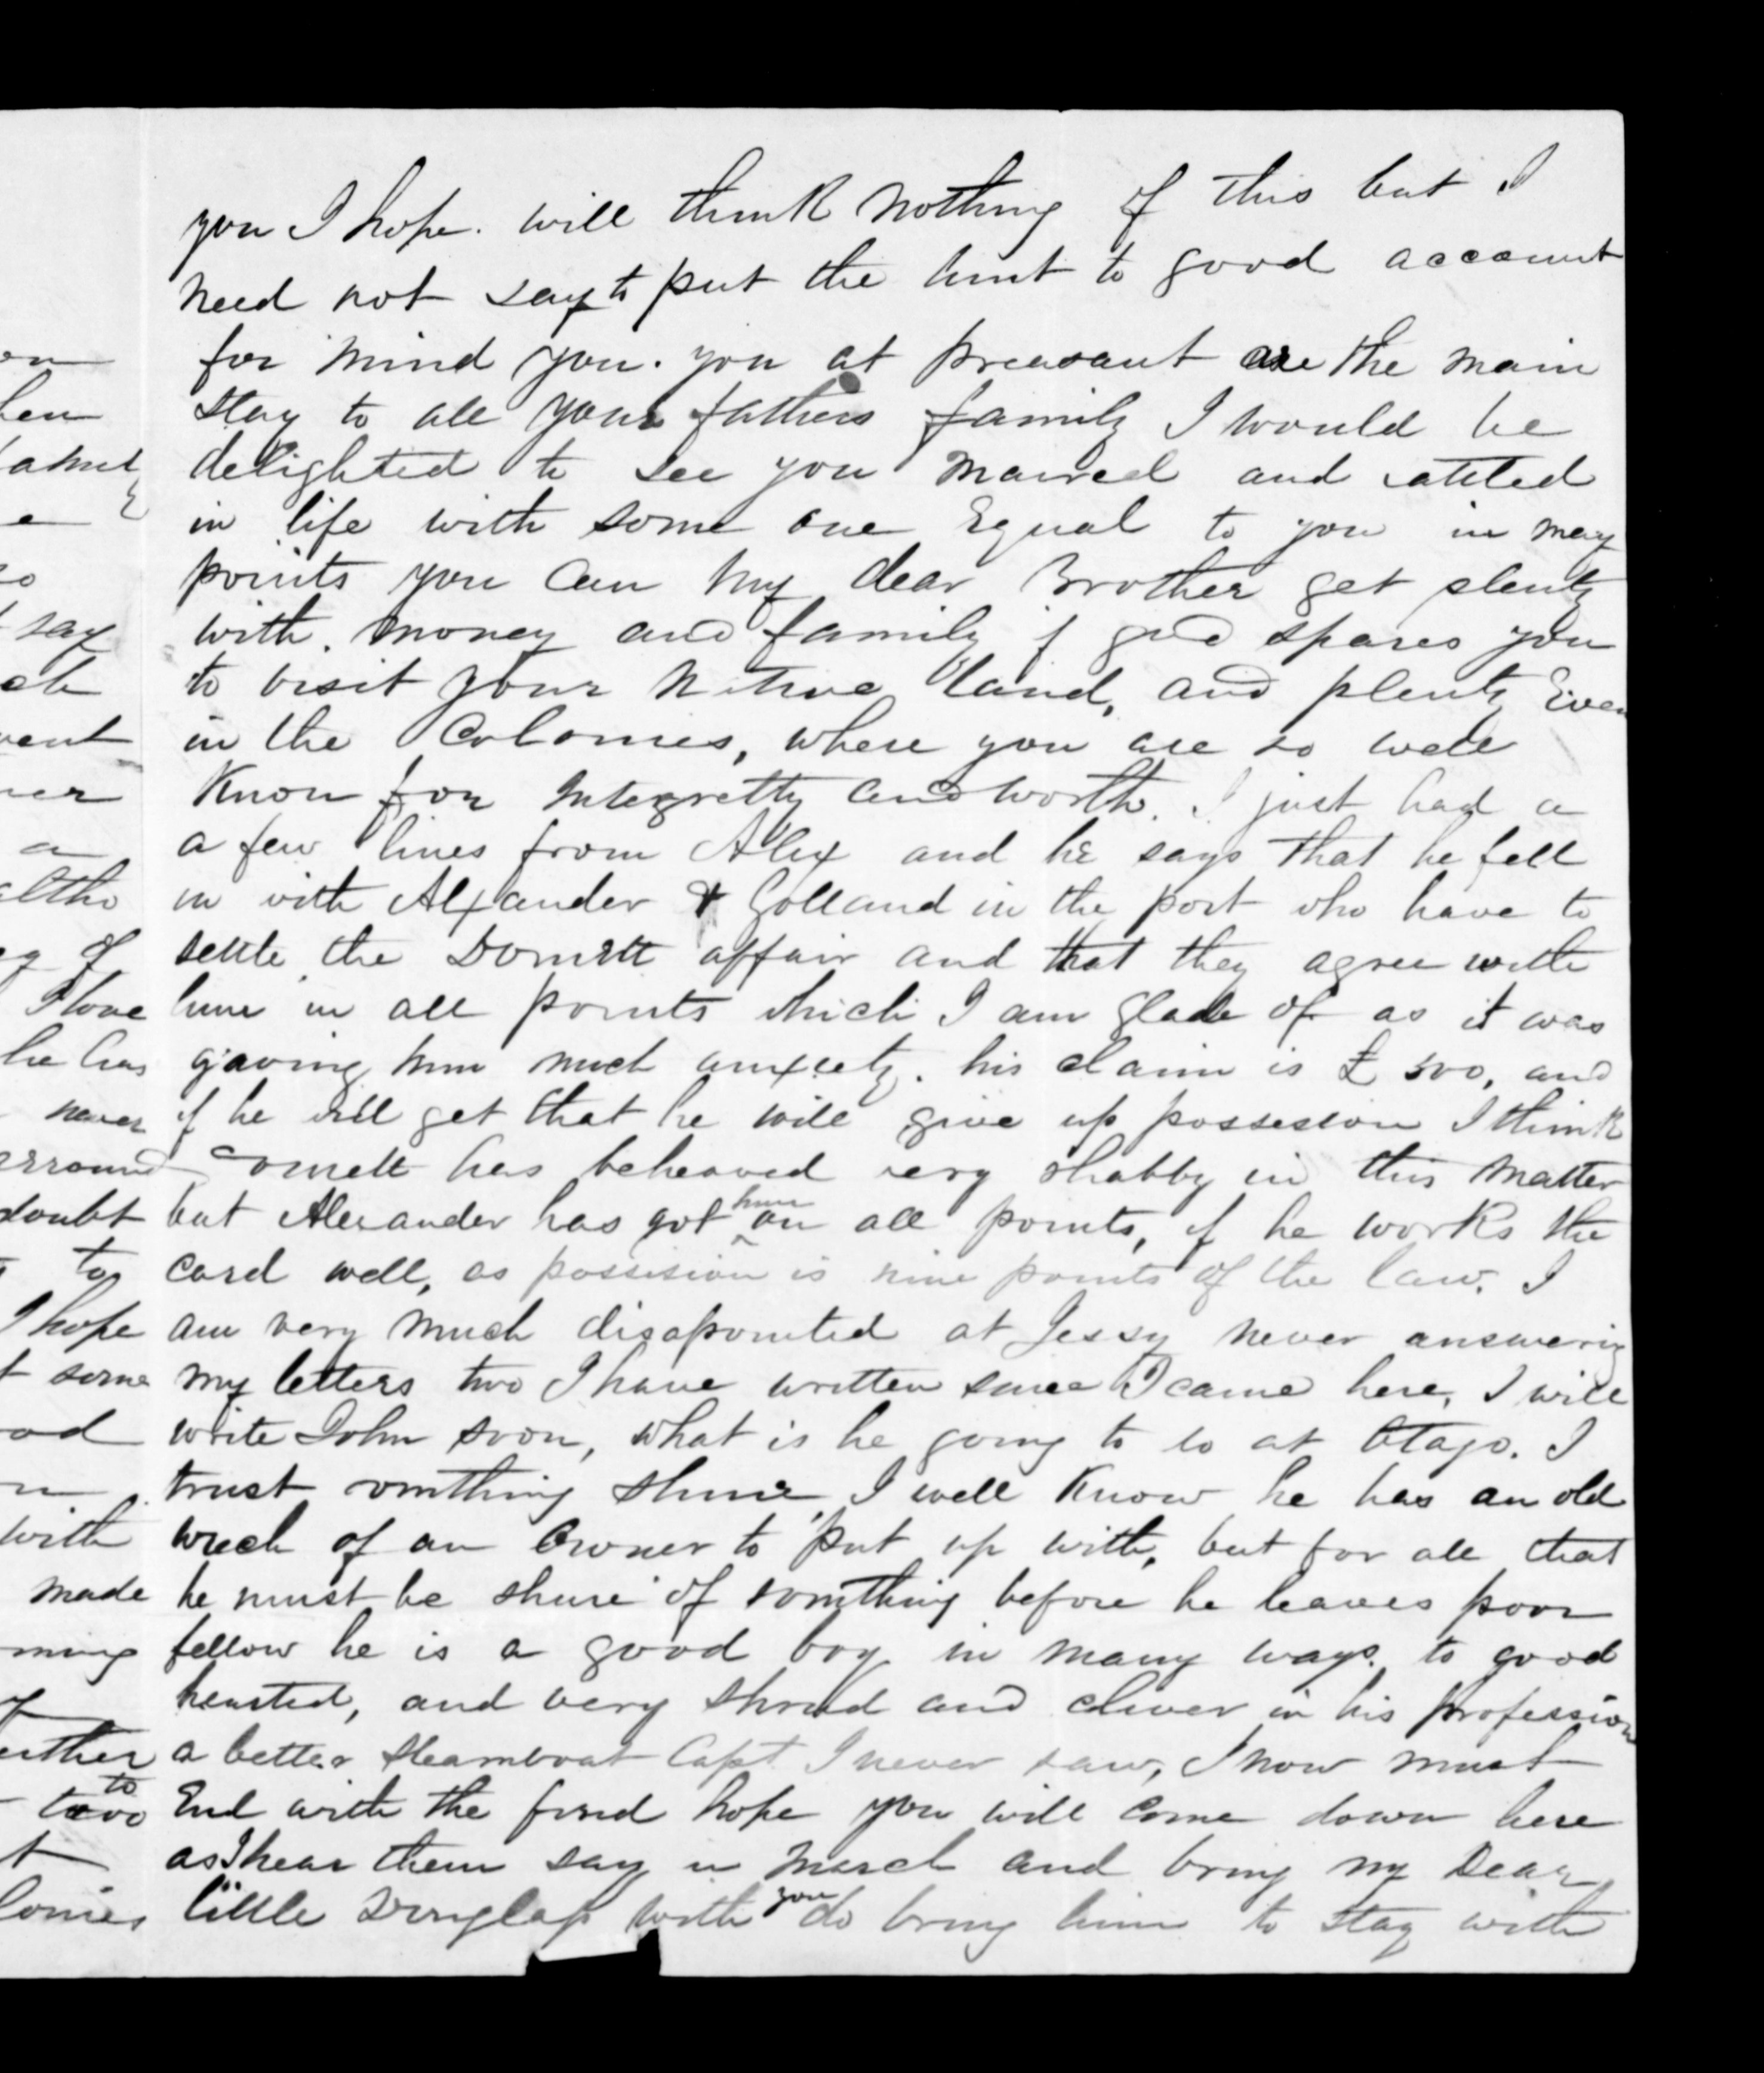 you I hope. will think nothing of this but I
need not say to put the hint to good account
for mind you. you at preasant are the main
stay to all your fathers family I would be
delighted to see you maired and sattled
in life with some one Equal to you in may
points you can my dear Brother get plenty
with. money and family if god spares you
to visit your native land, and plenty Even
in the Colonies, where you are so well
Know for Integretty and worth. I just had a
a few lines from Alex and he says that he fell
in with Alxander & Golland in the port who have to
settle the Domett affair and that they agree with
him in all points which I am glade of as it was
gaving him much anxiety. his claim is £500, and
if he will get that he will give up possession I think
Domett has beheaved very shabby in this matter
but Alexander has got him on all points, if he works the
card well, as possision is nine points of the law. I
am very much disapointed at Jessy never answering
my letters two I have written since I came here, I will
write John soon, what is he going to do at Otago. I
trust somthing shure, I well Know he has an old
wrech of an Owner to put up with, but for all that
he must be shure of somthing before he leaves poor
fellow he is a good boy in many ways. to good
hearted, and very shrud and cliver in his profession
a better steamboat Capt I never saw, I now must
End with the fond hope you will come down here
as I hear them say in March and bring my Dear
little with you do bring him to stay with